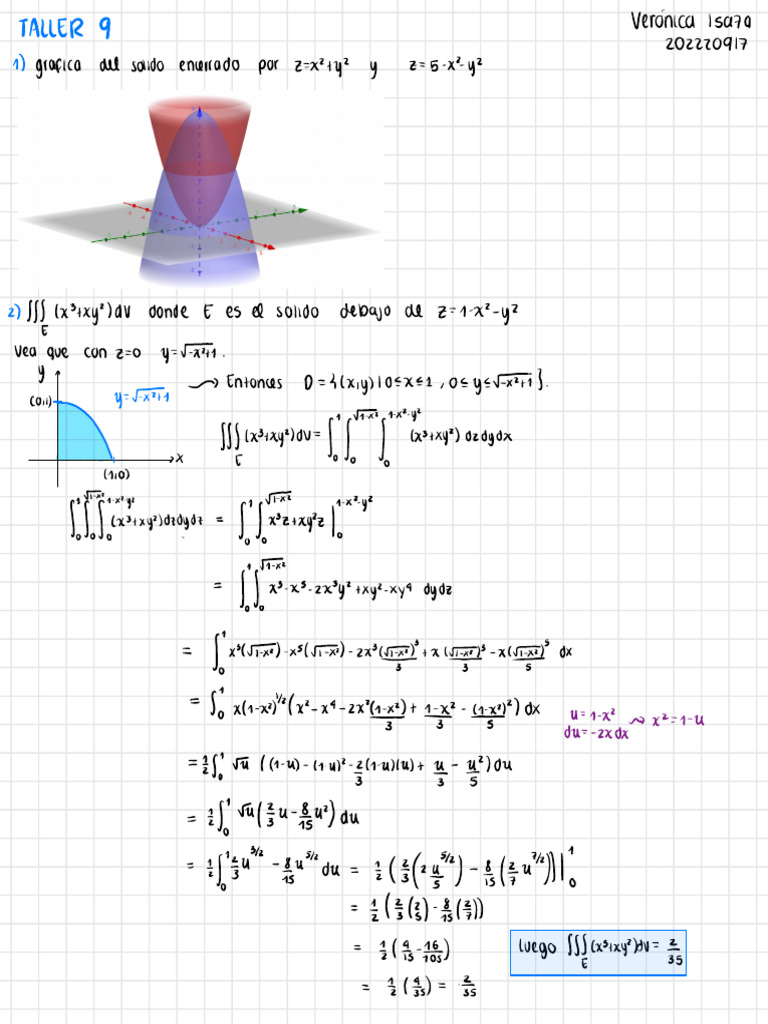 TALLER 9
Verónica Isaza
202220917
1) grafica del solido encerrado por z=x²+y² y z=5-x²-y²
2) ∭_E (x³+xy²)dV donde E es el solido debajo de z=1-x²-y²
Vea que con z=0 y=√(-x²+1).
y
(0,1)
y=√(-x²+1)
x
(1,0)
⤳ Entonces D={(x,y)|0≤x≤1, 0≤y≤√(-x²+1)}.
∭_E (x³+xy²)dV = ∫_0^1 ∫_0^√(1-x²) ∫_0^(1-x²-y²) (x³+xy²) dzdydx
∫_0^1 ∫_0^√(1-x²) ∫_0^(1-x²-y²) (x³+xy²)dzdydz = ∫_0^1 ∫_0^√(1-x²) x³z+xy²z |_0^(1-x²-y²)
= ∫_0^1 ∫_0^√(1-x²) x³-x⁵-2x³y²+xy²-xy⁴ dydz
= ∫_0^1 x³(√(1-x²))-x⁵(√(1-x²))-2x³(√(1-x²))³/3+x(√(1-x²))³/3-x(√(1-x²))⁵/5 dx
= ∫_0^1 x(1-x²)^(1/2) (x²-x⁴-2x²(1-x²)/3+(1-x²)/3-(1-x²)²/5) dx
u=1-x² ⤳ x²=1-u
du=-2xdx
= 1/2 ∫_0^1 √u ((1-u)-(1-u)²-2/3(1-u)(u)+u/3-u²/5)du
= 1/2 ∫_0^1 √u(2/3u-8/15u²)du
= 1/2 ∫_0^1 2/3u^(3/2)-8/15u^(5/2) du = 1/2(2/3(2u^(5/2)/5)-8/15(2/7u^(7/2)))|_0^1
= 1/2(2/3(2/5)-8/15(2/7))
= 1/2(4/15-16/105)
= 1/2(4/35) = 2/35
luego ∭_E (x³+xy²)dV = 2/35